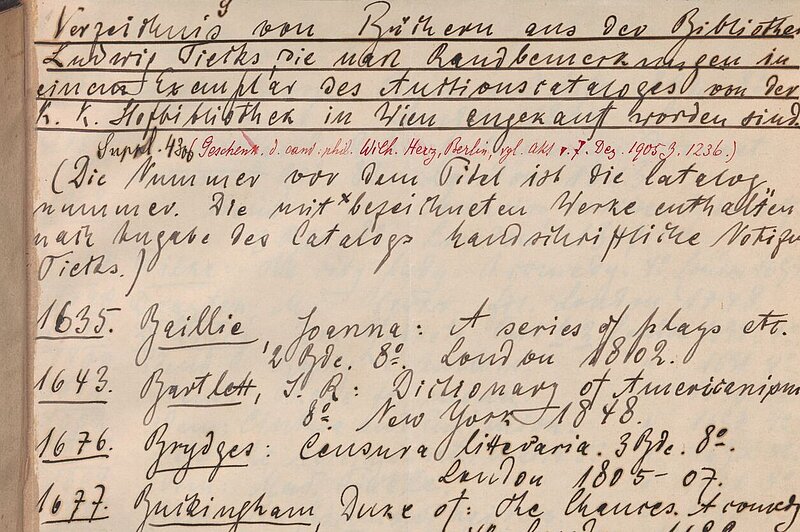 Verzeichnis von Büchern aus der Bibliothek
Ludwig Tiecks, die nach Randbemerkungen in
einem Exemplar des Auctionscataloges von der
K. K. Hofbibliothek in Wien angekauft worden sind.
Suppl. 4306 (Geschenk d. cand. phil. Wilh. Herz, Berlin, vgl. Akt v. 7. Dez. 1905 Z. 1236.)
(Die Nummer vor dem Titel ist die Catalog
nummer. Die mit × bezeichneten Werke enthalten
nach Angabe des Catalogs handschriftliche Notizen
Tiecks.)
1635. Baillie, Joanna: A series of plays etc.
2 Bde. 8o. London 1802.
1643. Bartlett, J. R: Dictionary of Americanisms
8o. New York 1848.
1676. Brydges: Censura literaria. 3 Bde. 8o.
London 1805-07.
1677. Buckingham, Duke of: the Chances. A comedy